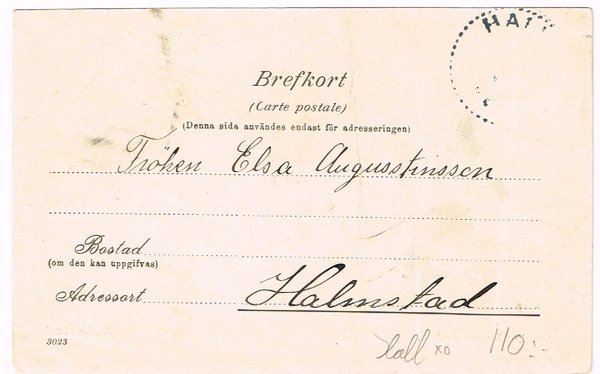 HAL
Brefkort
(Carte postale)
(Denna sida användes endast för adresseringen)
Fröken Elsa Augusstinsson
Bostad
(om den kan uppgifvas)
Adressort Halmstad
3023
Hall xo 110:-